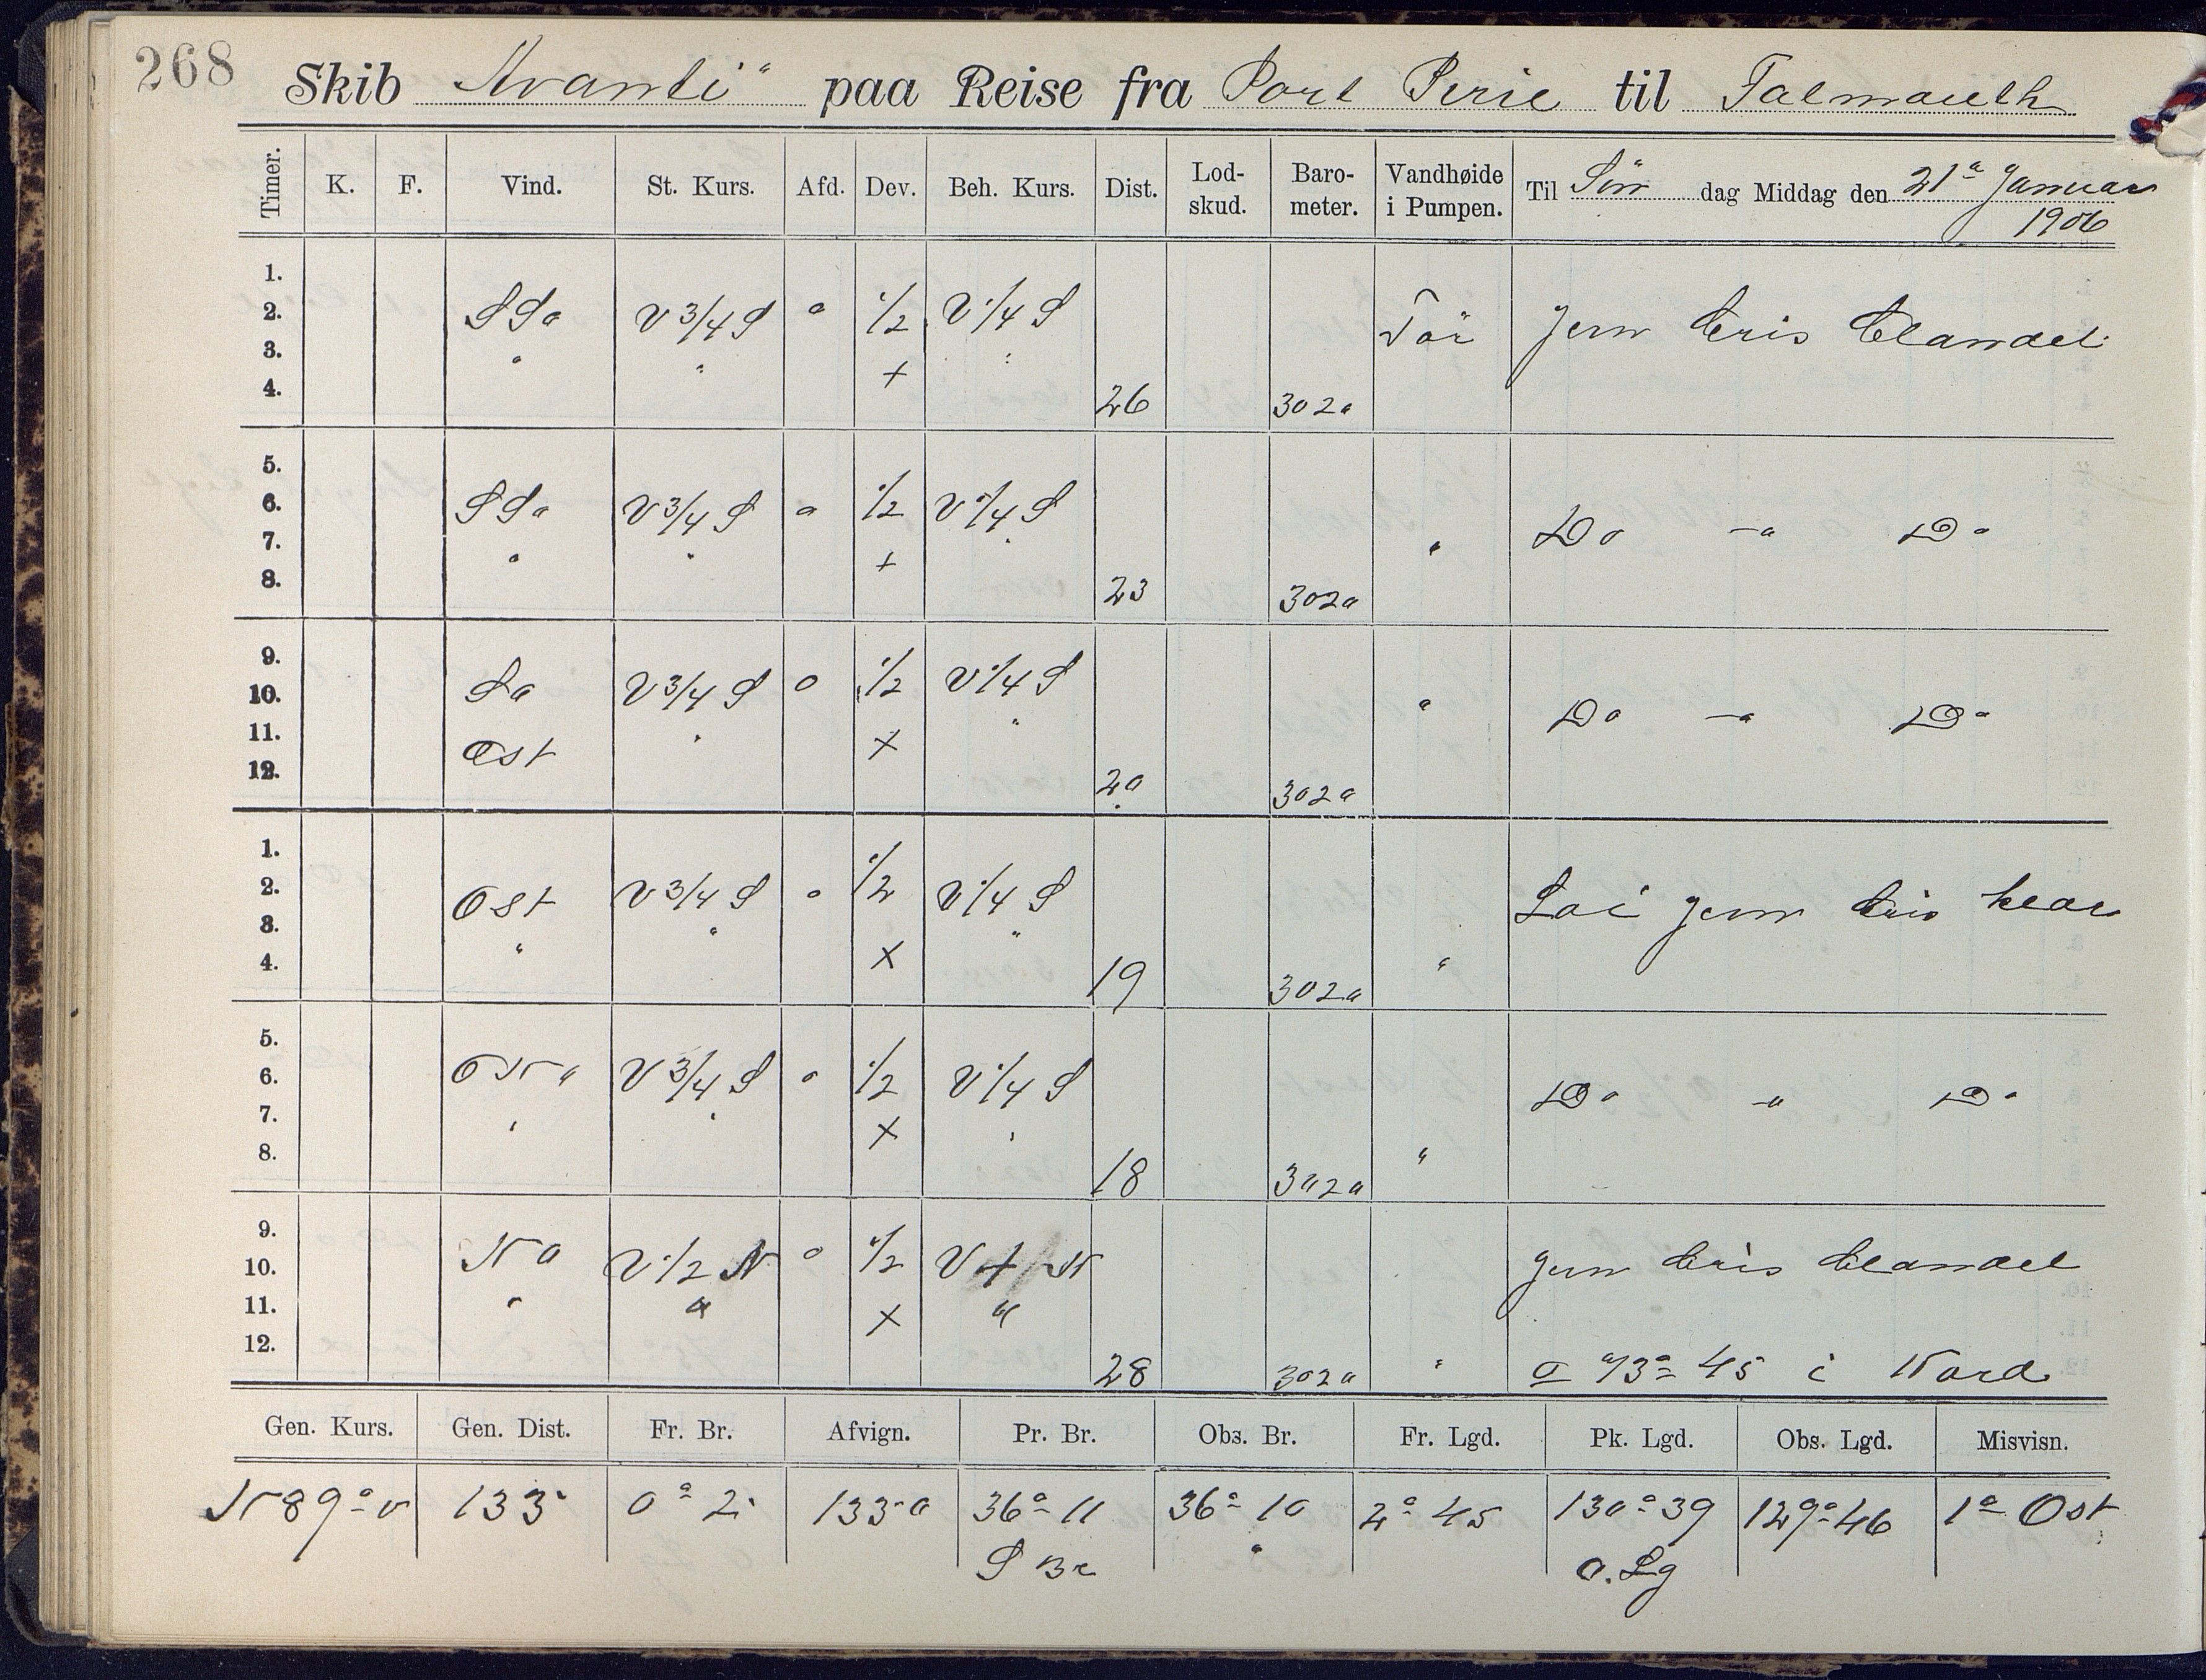 268
Skib "Avanti" paa Reise fra Port Pirie til Falmouth
Timer. K. F. Vind. St. Kurs. Afd. Dev. Beh. Kurs. Dist. Lod-skud. Baro-meter. Vandhøide i Pumpen. Til Søn dag Middag den 21de Januar 1906
1.
2. SSO V 3/4 S 0 1/2 V 1/4 S Tör Jevn bris Clandet
3. " " + "
4. 26 3020
5.
6. SSO V 3/4 S 0 1/2 V 1/4 S Do - Do
7. " " + " "
8. 23 3020
9.
10. SO V 3/4 S 0 1/2 V 1/4 S " Do - Do
11. Ost " + "
12. 20 3020
1.
2. Ost V 3/4 S 0 1/2 V 1/4 S Löi jevn bris klar
3. " " "
4. + 19 3020 "
5.
6. ONO V 3/4 S 0 1/2 V 1/4 S Do - Do
7. " " + "
8. 18 3020 "
9.
10. NO V 1/2 N 0 1/2 V + N Jevn bris Clandet
11. " " + "
12. 28 3020 " 73° 45 i Nord
Gen. Kurs. Gen. Dist. Fr. Br. Afvign. Pr. Br. Obs. Br. Fr. Lgd. Pk. Lgd. Obs. Lgd. Misvisn.
N 89° V 133 0° 2 133 0 36° 11 36° 10 2° 45 130° 39 129° 46 1° Ost
S Br " O. Lg